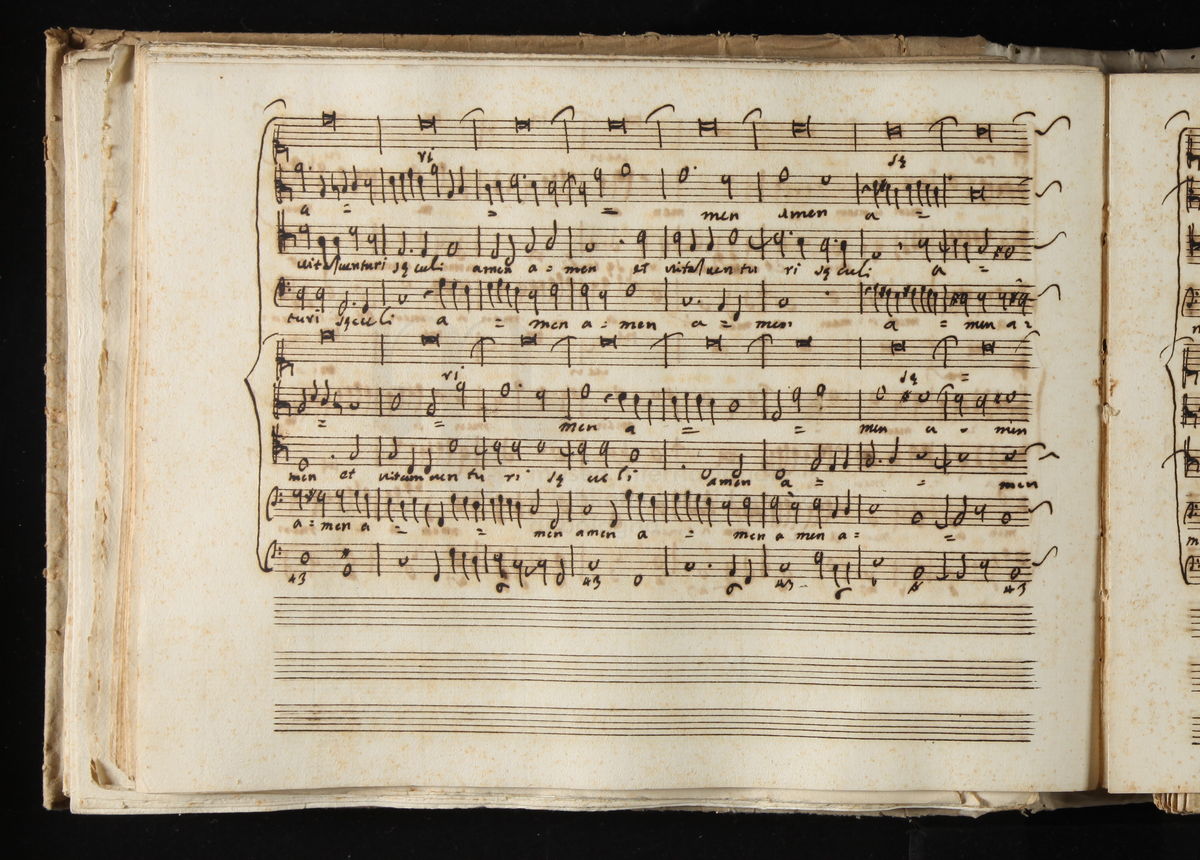 ri sę
a = = = men amen a =
vita venturi sęculi amen a = men et vita ventu ri sęculi a =
turi sęculi a = men a = men a = men a = men a =
ri sę =
= = men a = = men a = men
men et vitam ven tu ri sę cu li amen a = = men
a = men a = = men amen a = men a men a = =
43 6 43 6 43 6 43